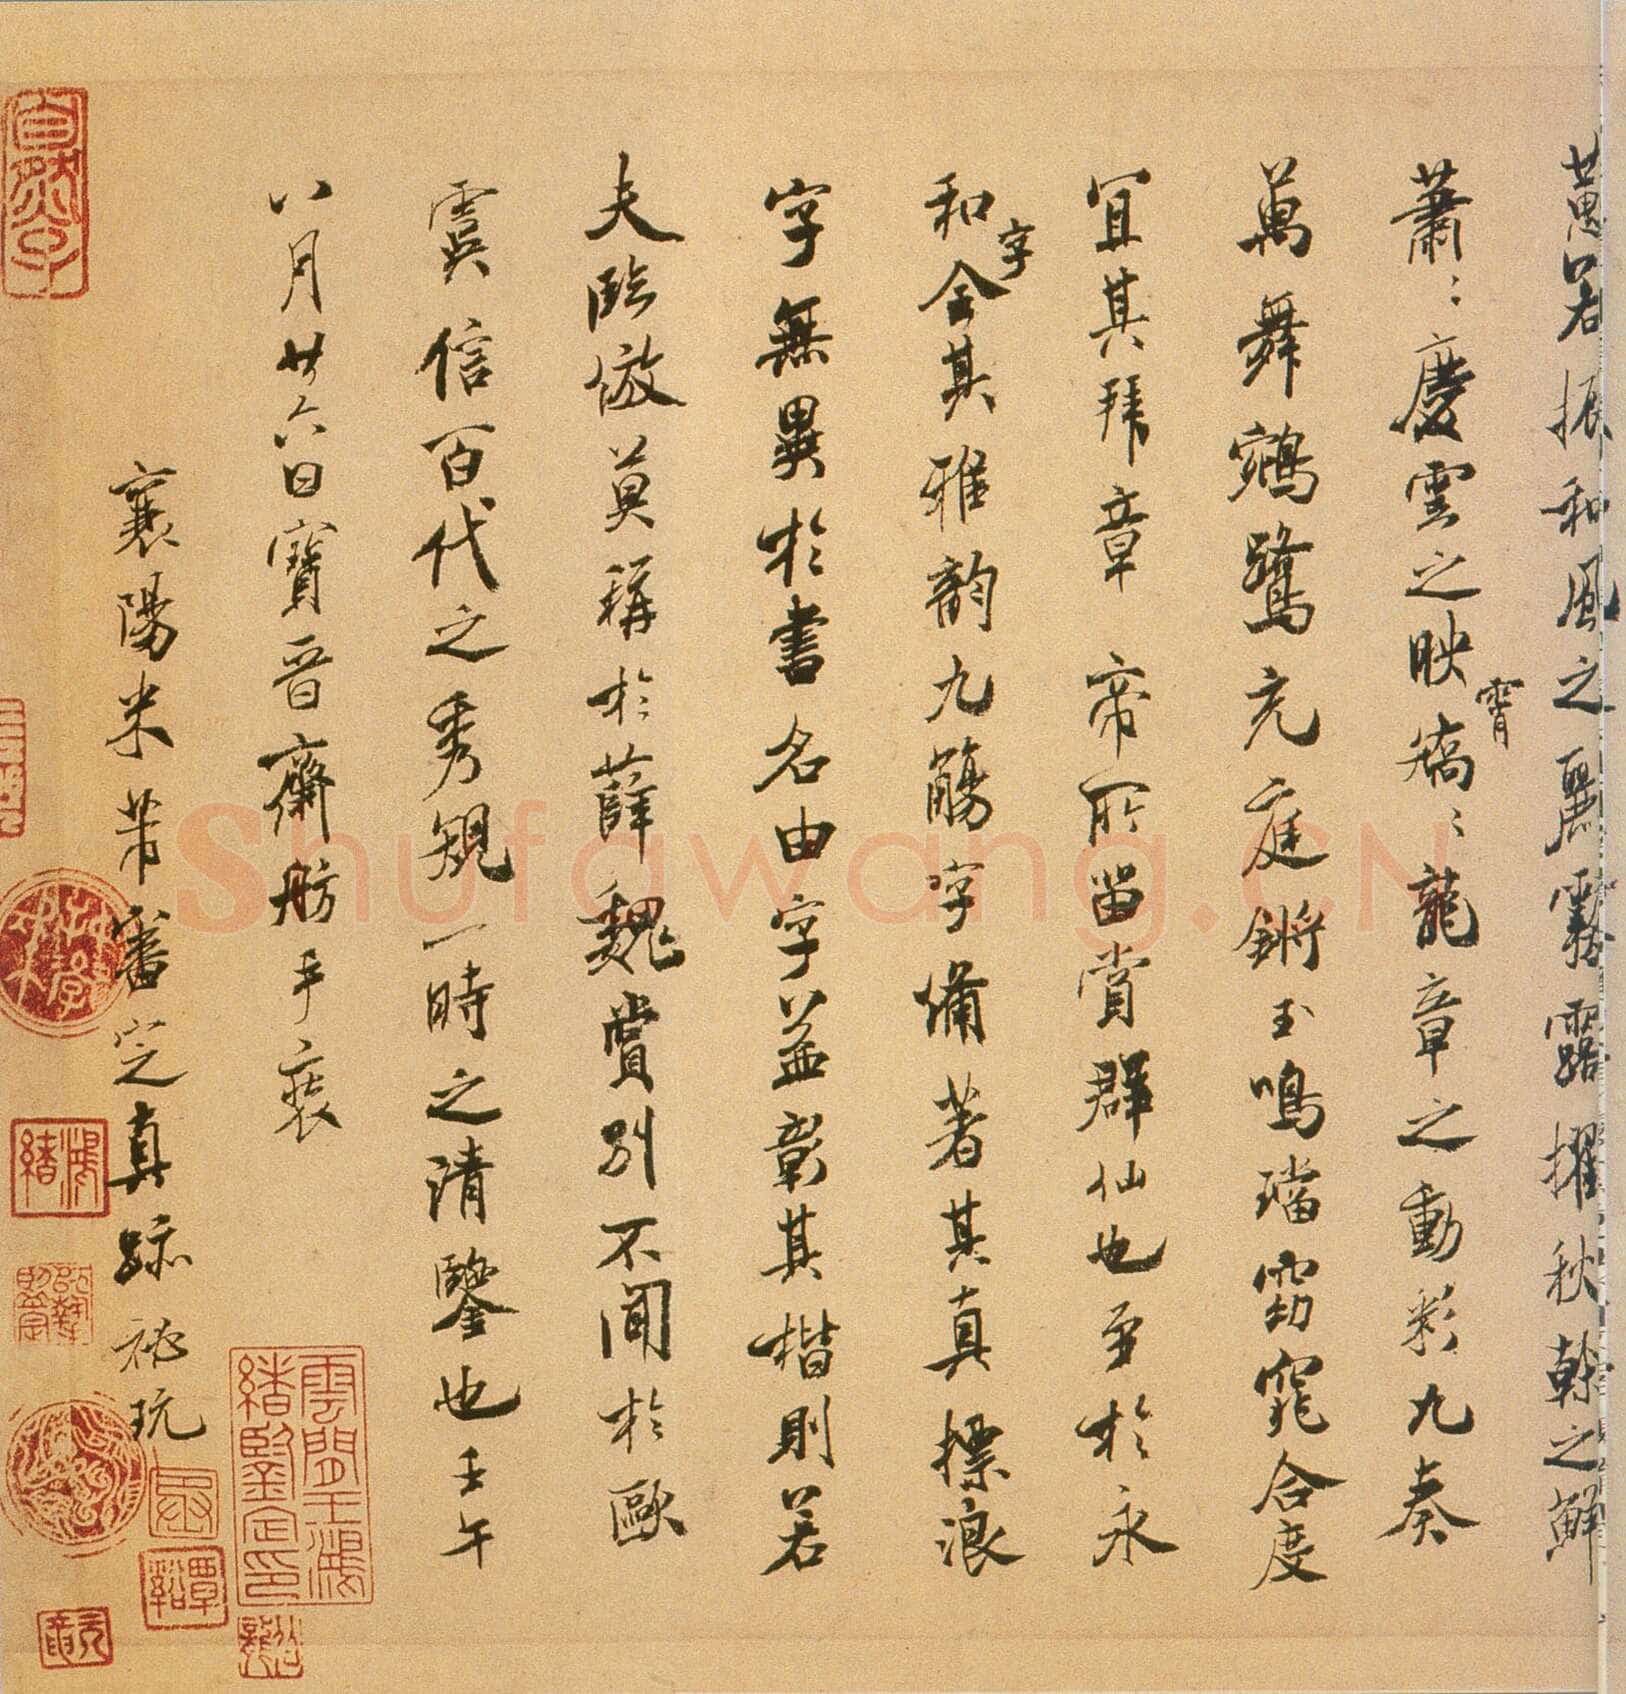 蕙若振和風之麗霧露擢秋幹之鮮
蕭〻慶雲之映霄矯〻龍章之動彩九奏
萬舞鵷鷺充庭鏘玉鳴璫窈窕合度
宜其拜章帝所留賞群仙也至於永
和字全其雅韵九觴字備著其真標浪
字無異於書名由字益彰其楷則若
夫臨倣莫稱於薛魏賞別不聞於歐
虞信百代之秀規一時之清鑒也壬午
八月廿六日寶晉齋舫手裝
襄陽米芾審定真跡祕玩
自然
雲間王鴻緒鑒定印
譚谿
Shufawang.CN